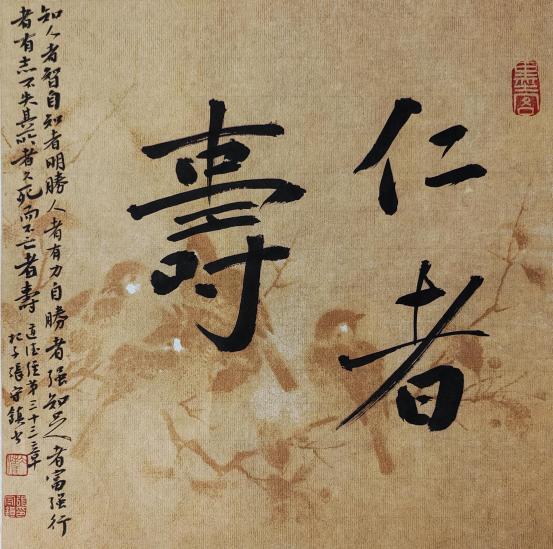 墨客
仁者
壽
知人者智自知者明勝人者有力自勝者强知足者富强行
者有志不失其所者久死而不亡者壽
道德經第三十三章
張守鎮书